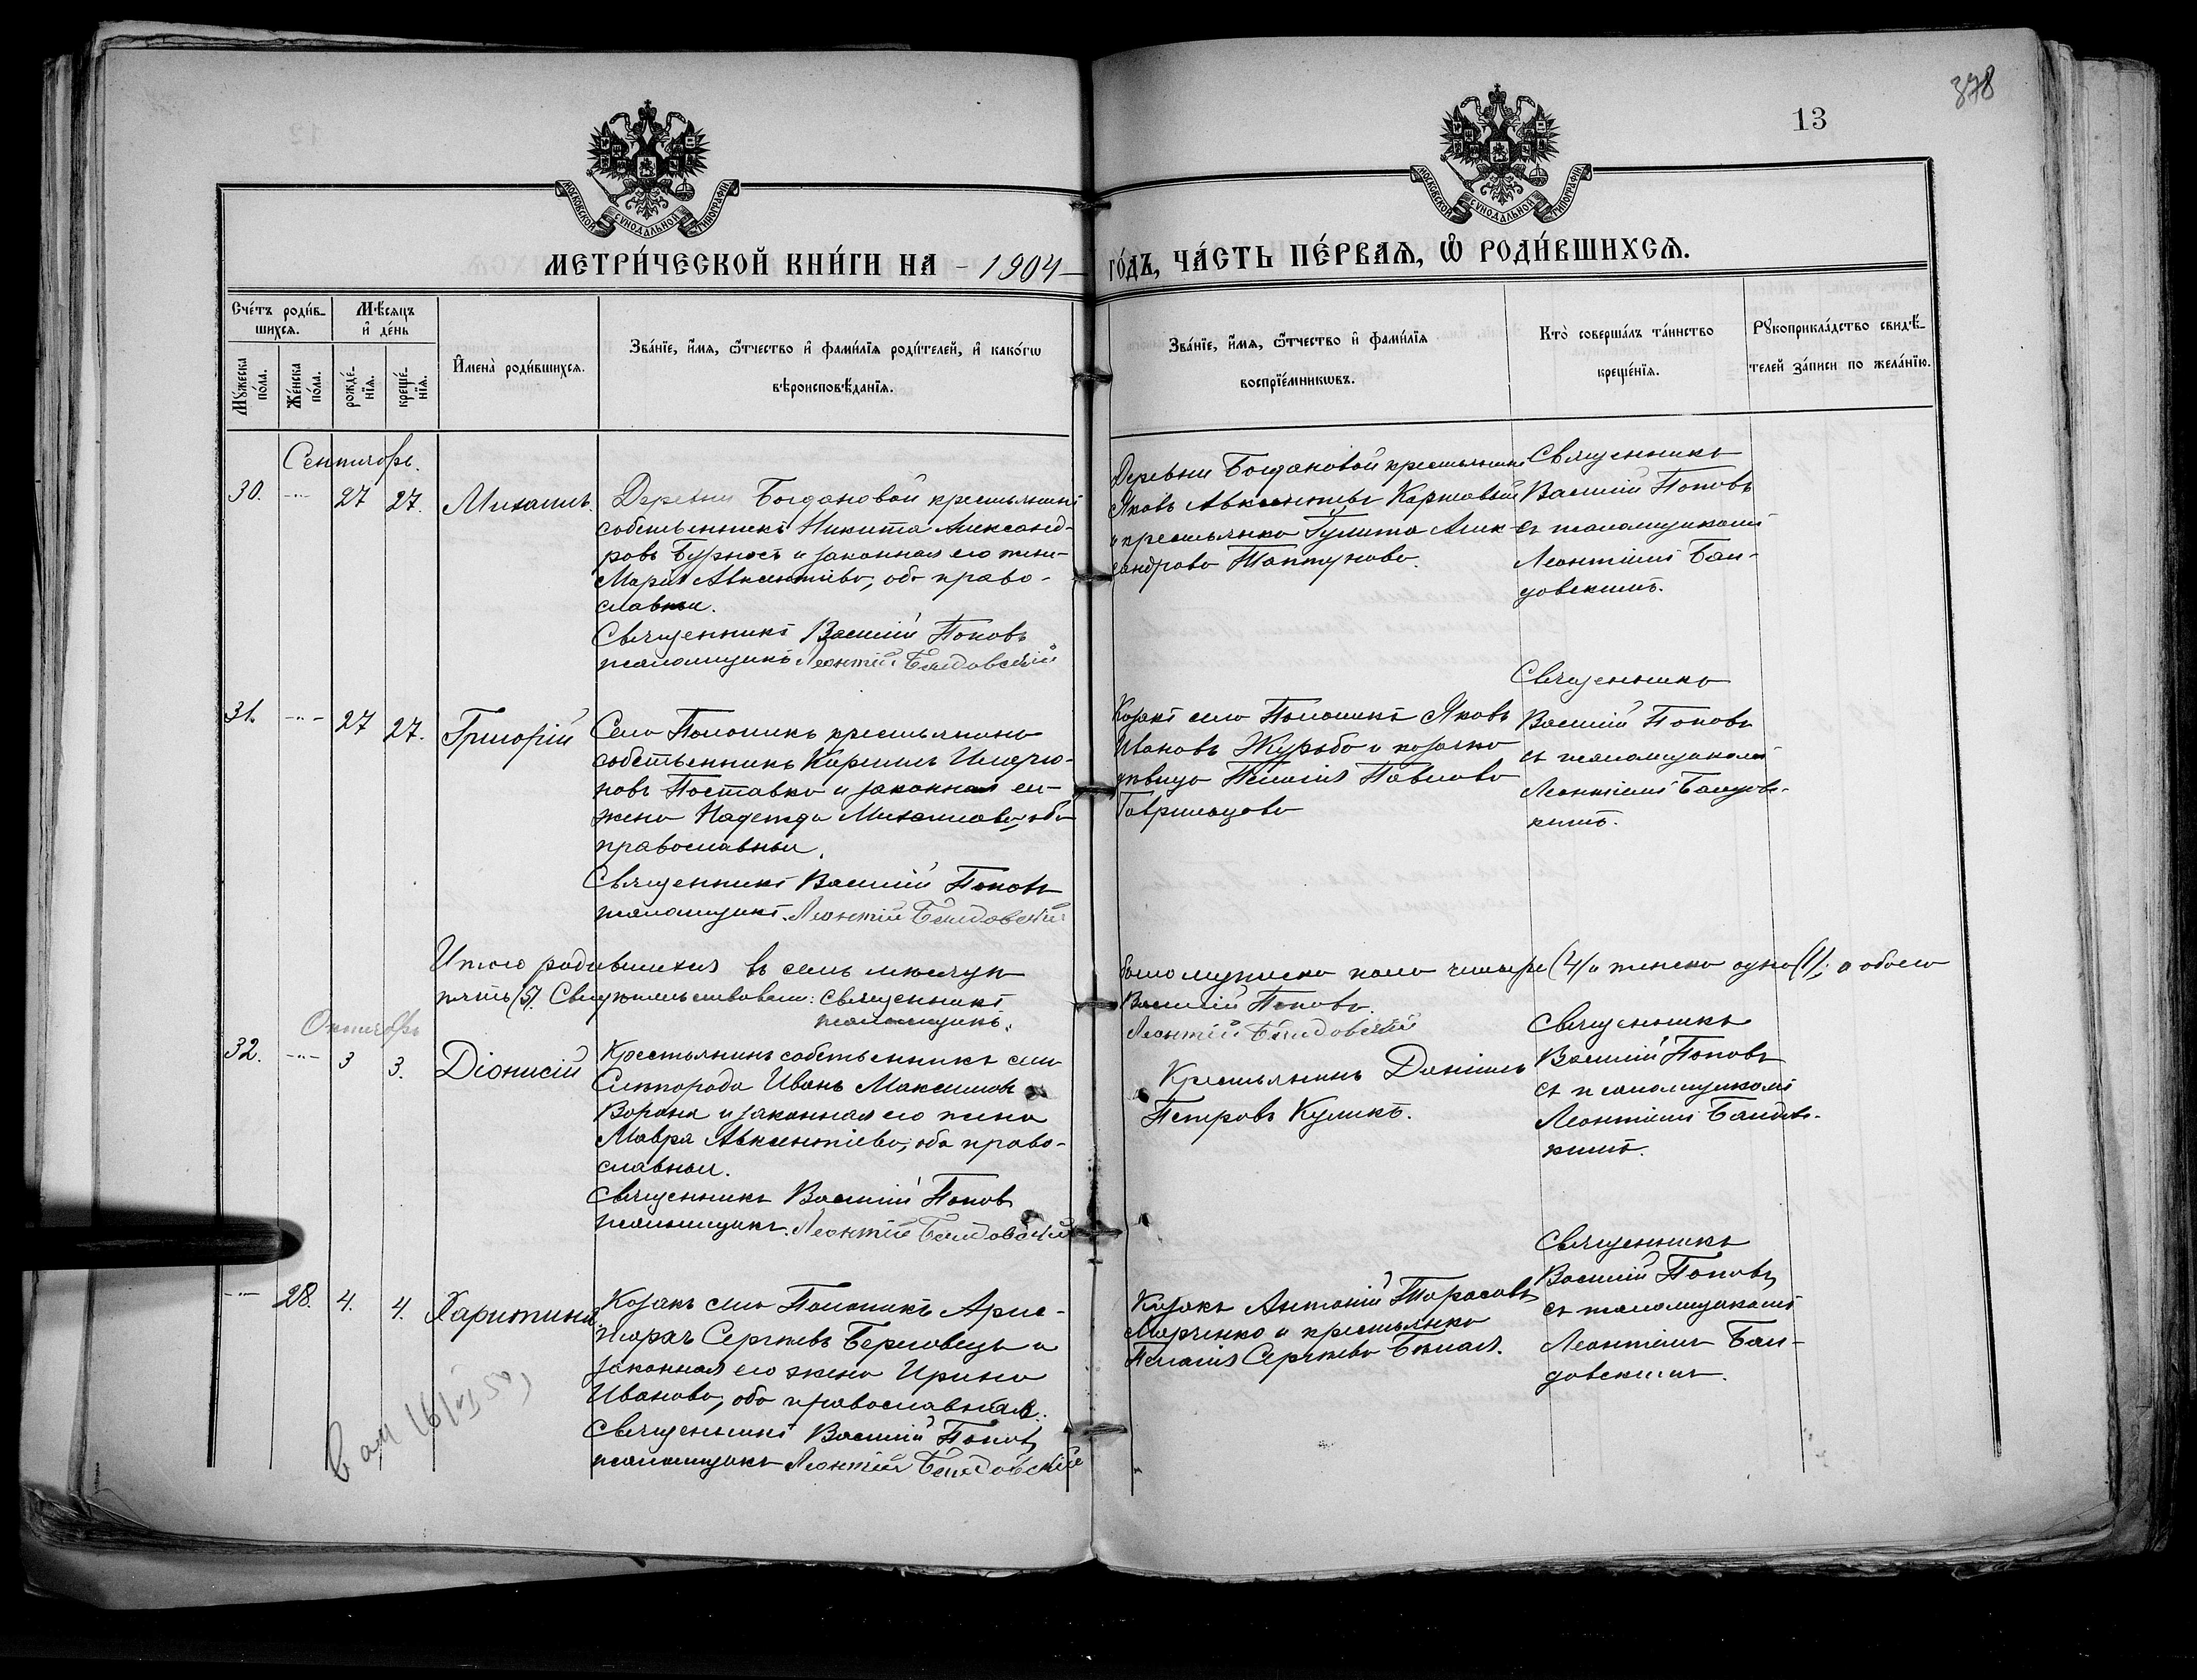 378
13
МОСКОВСКОЙ СѴНОДАЛЬНОЙ ТИПОГРАФІИ
МОСКОВСКОЙ СѴНОДАЛЬНОЙ ТИПОГРАФІИ
МЕТРИ́ЧЕСКОЙ КНИ́ГИ НА - 1904 - ГО́ДЪ, ЧА́СТЬ ПЕ́РВАѦ, Ѽ РОДИ́ВШИХСѦ.
Сче́тъ роди́в-
шихсѧ.
Мѣ́сяцъ
и҆ де́нь
Мꙋ́жеска по́ла.
Же́нска по́ла.
рожде́-
нїѧ.
креще́-
нїѧ.
И҆мена̀ роди́вшихсѧ.
Зва́нїе, и҆́мѧ, ѻ҆́тчество и҆ фами́лїѧ роди́телей, и҆ како́гѡ
вѣроисповѣ́данїѧ.
Зва́нїе, и҆́мѧ, ѻ҆́тчество и҆ фами́лїѧ
воспрїе́мникѡвъ.
Кто̀ соверша́лъ та́инство
креще́нїѧ.
Рꙋкоприкла́дство свидѣ́-
телей за́писи по жела́нїю.
Сентябрь.
30. -"- 27 27. Михаилъ.
Деревни Богдановой крестьянинъ
собственникъ Никита Александ-
ровъ Бурносъ и законная его жена
Мария Авксентіева, оба право-
славные.
Священникъ Василій Поповъ
псаломщикъ Леонтій Бандовскій
Деревни Богдановой крестьянинъ
Яковъ Авксентьевъ
и крестьянка Гулита Алек-
сандрова
Священникъ
Василій Поповъ
съ псаломщикомъ
Леонтіемъ Бан-
довскимъ.
31. -"- 27 27. Григорій
Села Пологикъ крестьянинъ
собственникъ Кириллъ
Поставка и законная его
жена Надежда Михаилова, оба
православные.
Священникъ Василій Поповъ
псаломщикъ Леонтій Бандовскій
Козакъ села Яковъ
Ивановъ Журьба и козачка
девица Пелагія Павлова
Гаврильцева
Священникъ
Василій Поповъ
съ псаломщикомъ
Леонтіемъ Бандовс-
кимъ.
Итого родившихся въ семъ месяце было мужеска пола четыре (4) и женска одна (1), а обоего
пять (5). Свидетельствовали: Священникъ Василій Поповъ.
псаломщикъ. Леонтій Бандовскій
Октябрь
32. -"- 3 3. Діонисій
Крестьянинъ собственникъ села
Снѣпорода Иванъ Максимовъ
Ворона и законная его жена
Мавра Авксентіева, оба право-
славные.
Священникъ Василій Поповъ
псаломщикъ. Леонтій Бандовскій
Крестьянинъ Даніилъ
Петровъ Куликъ.
Священникъ
Василій Поповъ
съ псаломщикомъ
Леонтіемъ Бандовс-
кимъ.
-"- 28. 4. 4. Харитина
Козакъ села Арис-
тархъ Сергѣевъ Берловецъ и
законная его жена Ирина
Иванова, оба православные.
Священникъ Василій Поповъ
псаломщикъ Леонтій Бандовскій
Козакъ Антоній Тарасовъ
Марченко и крестьянка
Пелагія Сергѣева
Священникъ
Василій Поповъ
съ псаломщикомъ
Леонтіемъ Бан-
довскимъ.